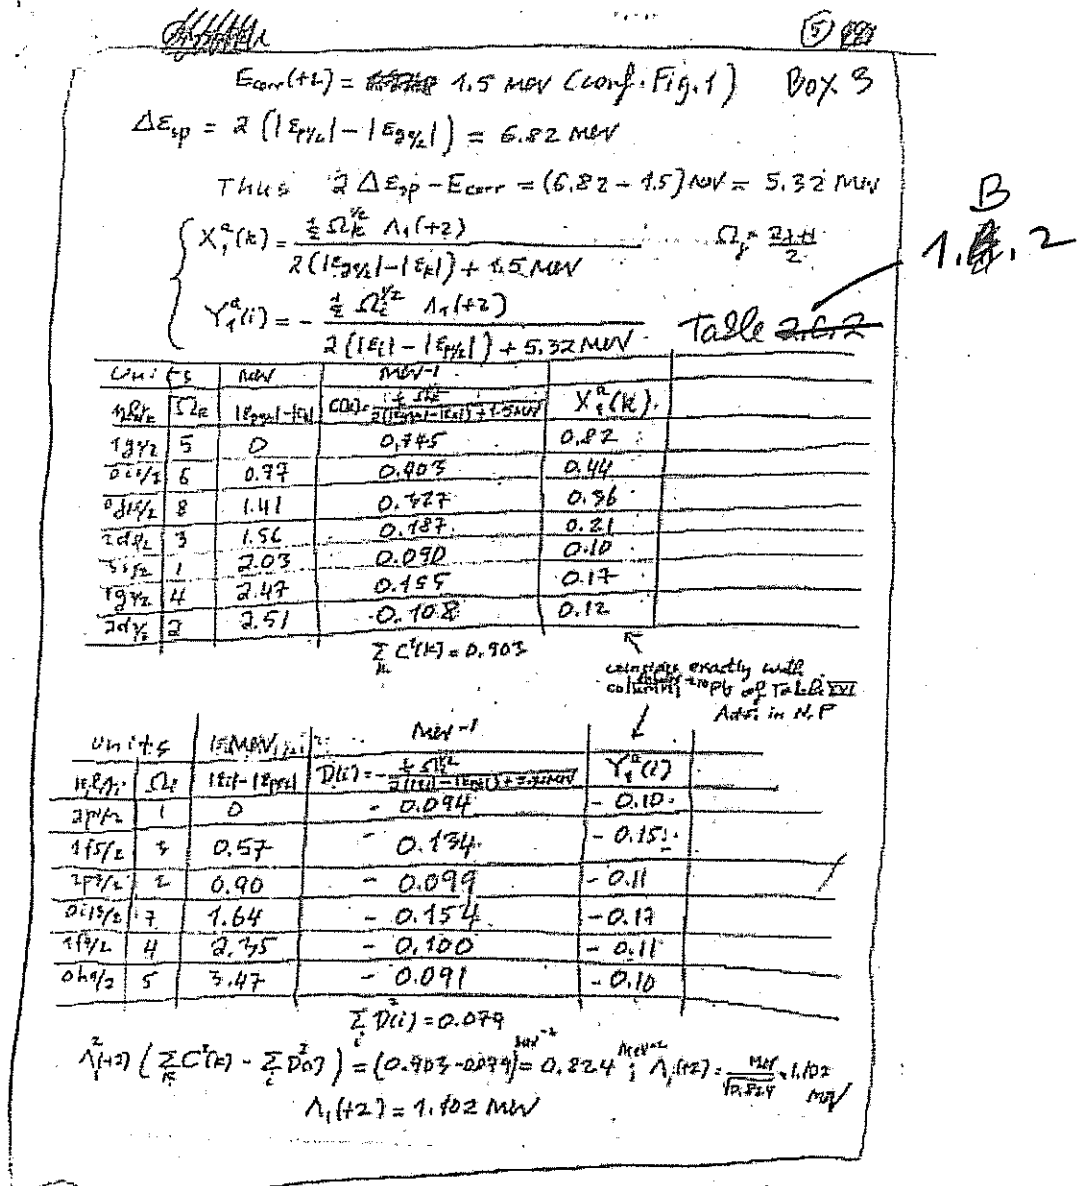 5
E_corr(+2) = 1.5 MeV (conf. Fig. 1) Box 3
Δε_sp = 2 (|ε_p1/2| - |ε_g9/2|) = 6.82 MeV
Thus 2 Δε_sp - E_corr = (6.82 - 1.5) MeV = 5.32 MeV
X_1^a(k) = 1/2 Ω_k^1/2 Λ_1(+2) / 2(|ε_g9/2| - |ε_k|) + 1.5 MeV
Ω_j = 2j+1 / 2
B
1. .2
Y_1^a(i) = - 1/2 Ω_i^1/2 Λ_1(+2) / 2(|ε_i| - |ε_p1/2|) + 5.32 MeV
Table 2.C.2
Units MeV MeV-1
Ω_k |ε_g9/2| - |ε_k| C(k) = 1/2 Ω_k^1/2 / 2(|ε_g9/2| - |ε_k|) + 1.5 MeV X_1^a(k)
1g9/2 5 0 0.745 0.82
0i11/2 6 0.77 0.403 0.44
0j15/2 8 1.41 0.327 0.36
2d5/2 3 1.56 0.187 0.21
3s1/2 1 2.03 0.090 0.10
1g7/2 4 2.47 0.155 0.17
2d3/2 2 2.51 0.108 0.12
Σ_k C²(k) = 0.903
coincides exactly with
column 210Pb of Table XVI
in N.P
Units MeV MeV-1
Ω_i |ε_i| - |ε_p1/2| D(i) = - 1/2 Ω_i^1/2 / 2(|ε_i| - |ε_p1/2|) + 5.32 MeV Y_1^a(i)
2p1/2 1 0 - 0.094 - 0.10
1f5/2 3 0.57 - 0.134 - 0.15
2p3/2 2 0.90 - 0.099 - 0.11
0i13/2 7 1.64 - 0.154 - 0.17
1f7/2 4 2.35 - 0.100 - 0.11
0h9/2 5 3.47 - 0.091 - 0.10
Σ_i D²(i) = 0.079
Λ_1²(+2) (Σ_k C²(k) - Σ_i D²(i)) = (0.903 - 0.079) MeV-2 = 0.824 MeV-2 ; Λ_1(+2) = MeV / √0.824 = 1.102 MeV
Λ_1(+2) = 1.102 MeV